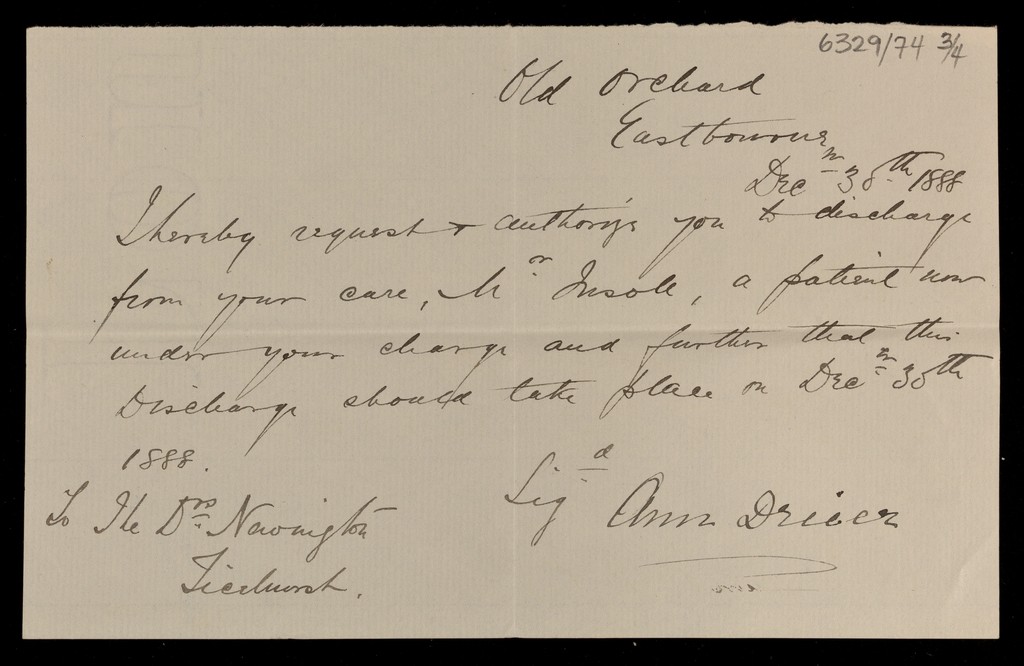 6329/74 3/4
Old Orchard
Eastbourne
Decr 30th 1888
I hereby request & authorize you to discharge
from your care, Mr Insole, a patient now
under your charge and further that this
Discharge should take place on Decr 30th
1888.
Sigd Ann Driver
To The Drs Newington
Ticehurst.